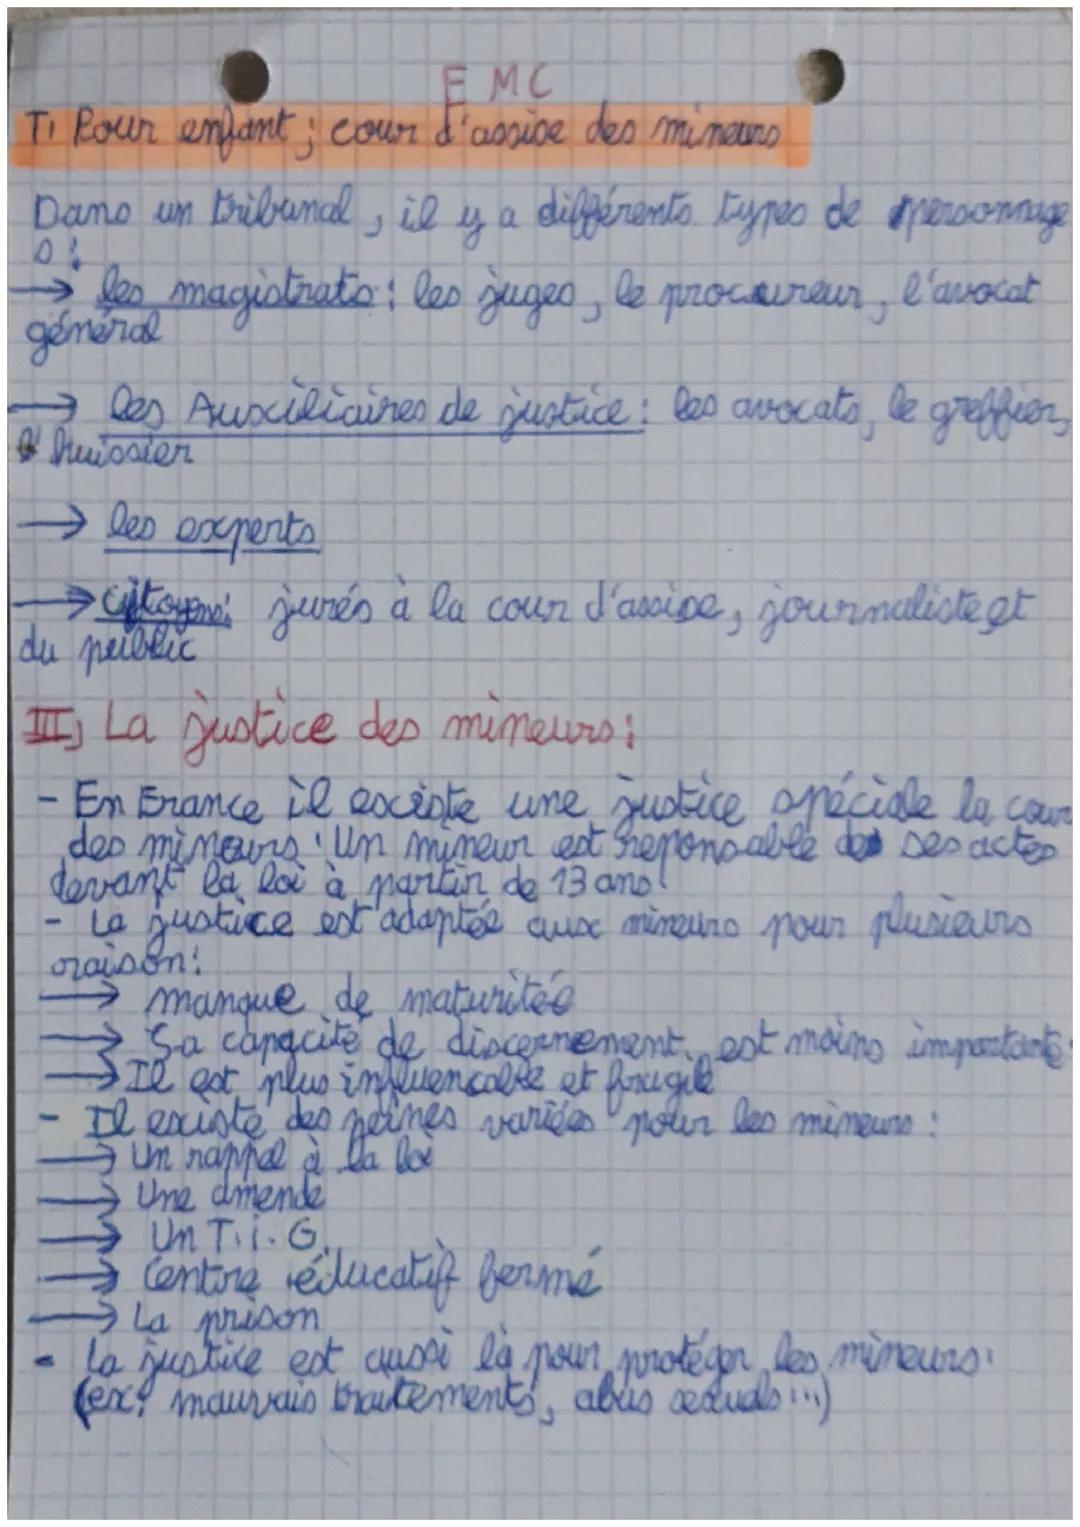 EMC
T1 Pour enfant ; cour d'assise des mineurs
Dans un tribunal, il y a différents types de personnage
s :
→ les magistrats : les juges, le procureur, l'avocat
général
→ les Auxiliaires de justice : les avocats, le greffier,
l'huissier
→ les experts
→ citoyens : jurés à la cour d'assise, journaliste et
du public
III) La justice des mineurs :
- En France il existe une justice spéciale la cour
des mineurs. Un mineur est reponsable de ses actes
devant la loi à partir de 13 ans.
- La justice est adaptée aux mineurs pour plusieurs
raison :
→ manque de maturitée
→ Sa capacité de discernement est moins importante.
→ Il est plus influençable et fragile
- Il existe des peines variées pour les mineurs :
→ Un rappel à la loi
→ Une amende
→ Un T.i.G.
→ Centre éducatif fermé
→ La prison
- La justice est aussi là pour protéger les mineurs.
(ex : mauvais traitements, abus sexuels ...)